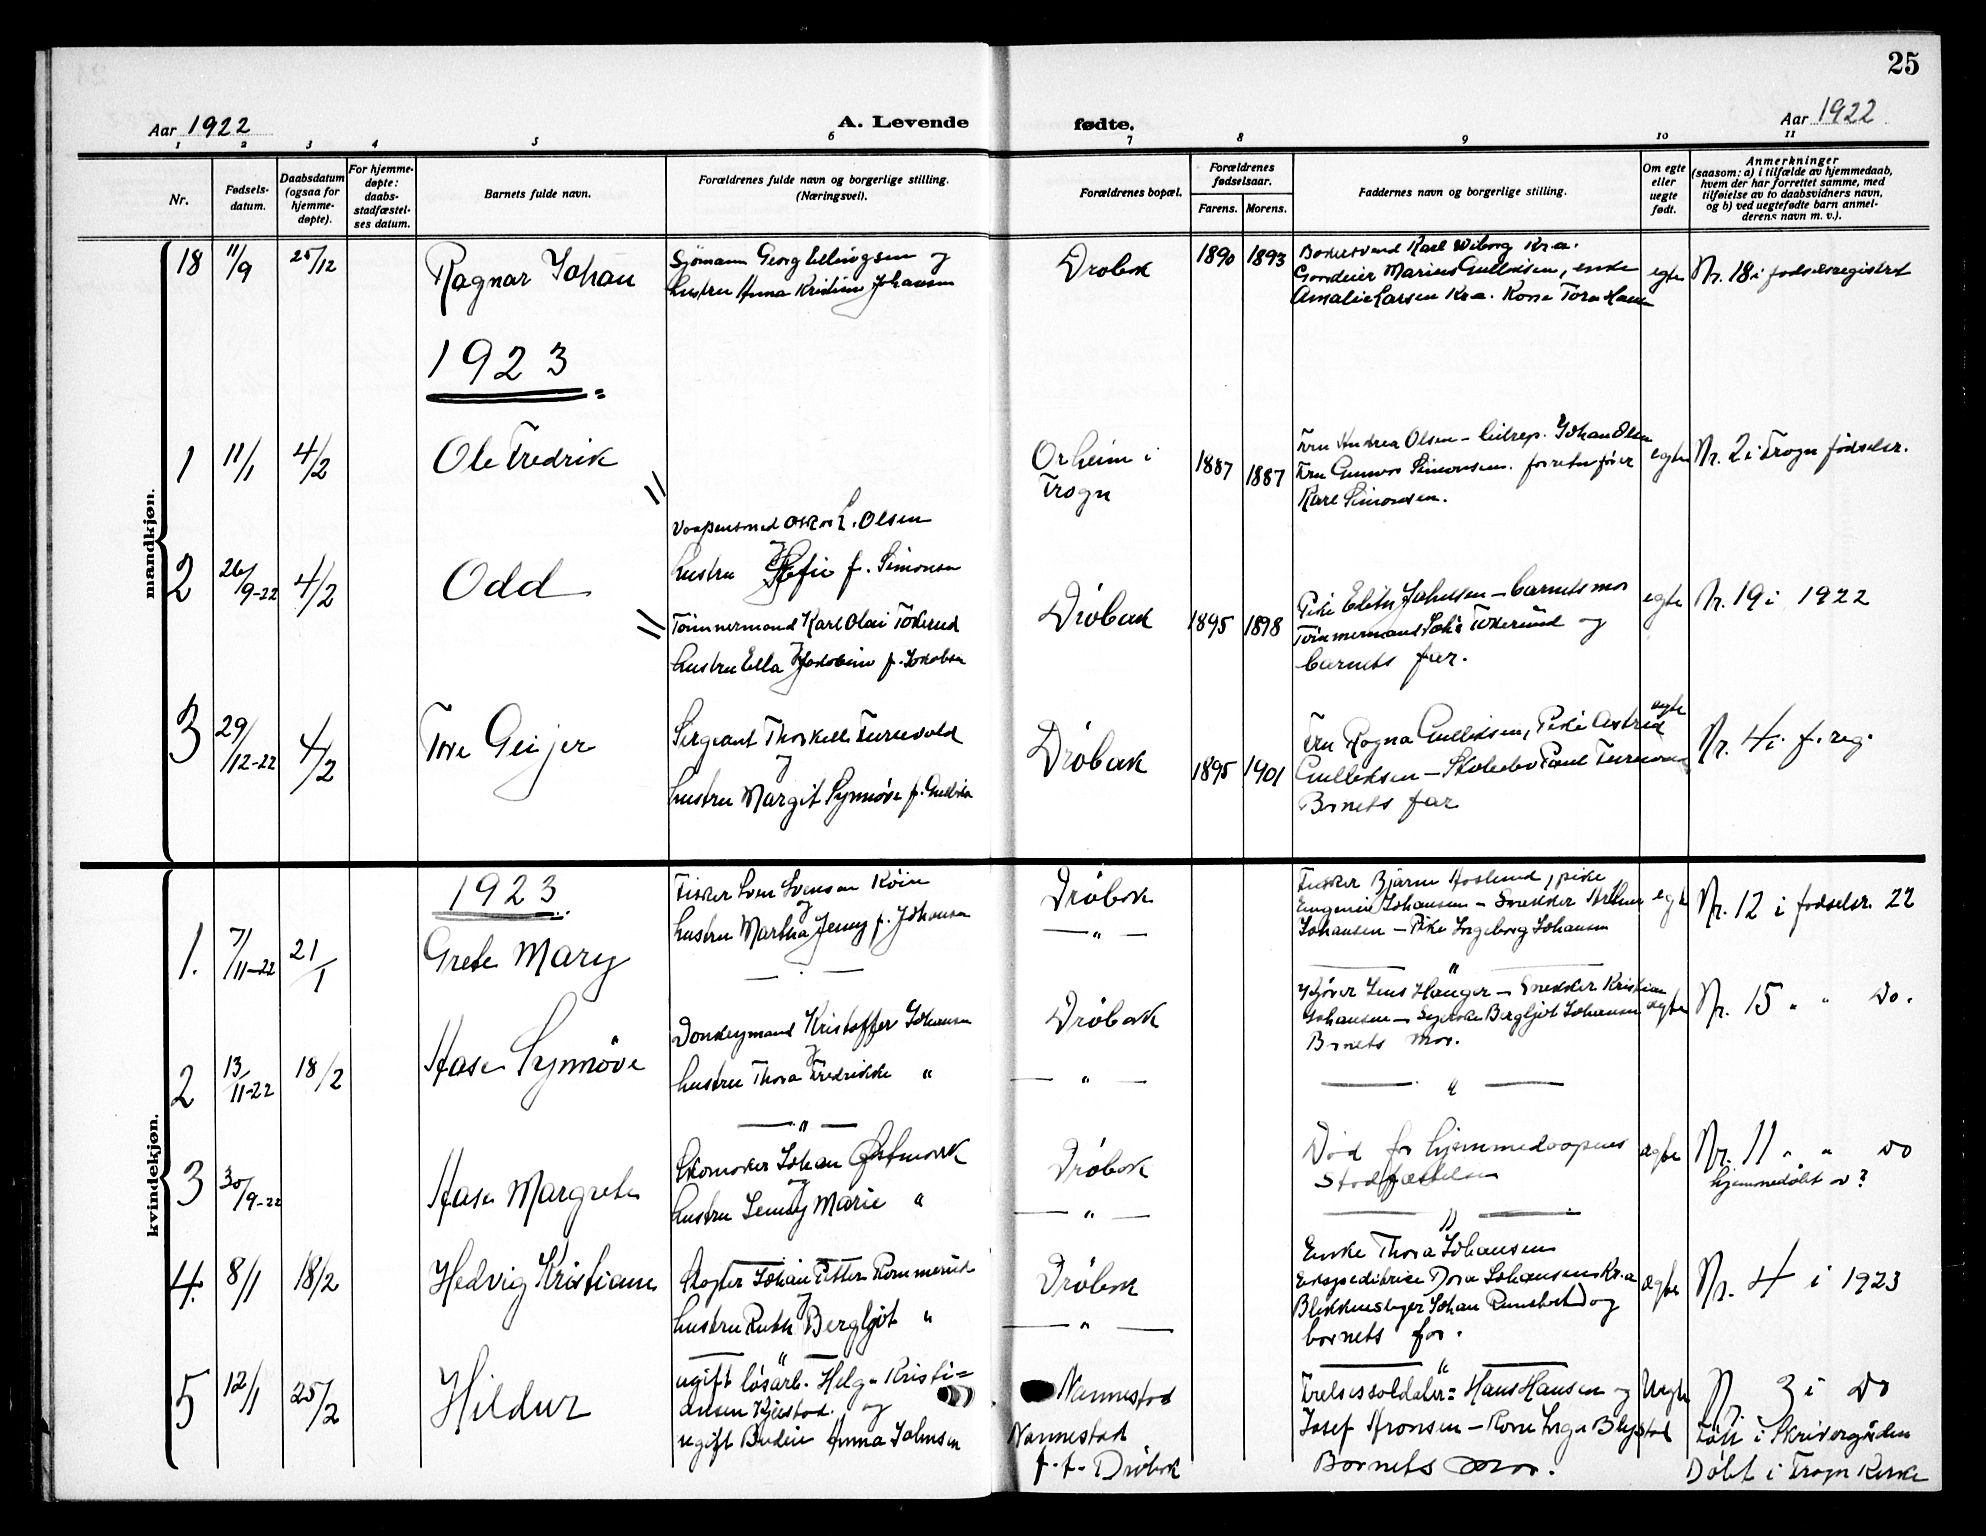 25
Aar 1922
A. Levende fødte.
Aar 1922
1 2 3 4 5 6 7 8 9 10 11
Nr.
Fødsels-
datum.
Daabsdatum
(ogsaa for
hjemme-
døpte).
For hjemme-
døpte:
daabs-
stadfæstel-
ses datum.
Barnets fulde navn.
Forældrenes fulde navn og borgerlige stilling.
(Næringsvei).
Forældrenes bopæl.
Forældrenes
fødselsaar.
Farens. Morens.
Faddernes navn og borgerlige stilling.
Om egte
eller
uegte
født.
Anmerkninger
(saasom: a) i tilfælde av hjemmedaab,
hvem der har forrettet samme, med
tilføielse av to daabsvidners navn,
og b) ved uegtefødte barn anmel-
derens navn m. v.).
mandkjøn.
18 11/9 25/12 Ragnar Johan
Sjømann Georg Ellingsen og
hustru Anna Kristine Johansen
Drøbak 1890 1893
Karl Wiborg Kr.a.
Marius Gulliksen, enke
Amalie Larsen Kr.a. Kone Tora
egte
Nr. 18 i fødselsregistret
1923
1 11/1 4/2 Ole Fredrik
//
Vaapensmed Oskar L. Olsen
og
hustru Sofie f. Simonsen
i
Frogn
1887 1887
Fru Andrea Olsen - Johan Olsen
Fru Gunvor Simonsen.
Karl Simonsen.
egte
Nr. 2 i Frogn fødselsr.
2 26/9-22 4/2 Odd
//
Tømmermand Karl Olai
og
hustru Ella Jakobine f. Jakobsen
Drøbak 1895 1898
Pike Johnsen - barnets mor
Tømmermand og
barnets far.
egte
Nr. 19 i 1922
3 29/12-22 4/2 Tore Geijer
Sergeant
og
hustru Margit Synnøve f. Gulliksen
Drøbak 1895 1901
Fru Ragna Gulliksen, Pike Astrid
Gulliksen - Paul
Barnets far
egte
Nr. 4 i f. reg.
kvindekjøn.
1923
1. 7/11-22 21/1 Grete Mary
Fisker Sven Svensen
og
hustru Martha Jenny f. Johansen
— " —
Drøbak
— " —
Fisker Bjarne, pike
Eugenie Johansen - Snekker Arthur
Johansen - Pike Ingeborg Johansen
— " —
egte
Nr. 12 i fødselsr. 22
2 13/11-22 18/2 Aase Synnøve
Donkeymand Kristoffer Johansen
og
hustru Thora Fredrikke "
— " —
Drøbak
— " —
Jens Hauger - Snekker Kristian
Johansen - Syerske Bergljot Johansen
Barnets mor.
— " —
egte
Nr. 15 " " Do.
3 30/9-22 Aase Margrete
Skomaker Johan Østmark
og
hustru Jenny Marie "
Drøbak
— " —
Død før hjemmedaapens
Stadfæstelse
— " —
egte
Nr. 11 " " Do
hjemmedøbt av?
4. 8/1 18/2 Hedvig Kristiane
Slagter Johan Petter Rommerud
og
hustru Ruth Bergljot "
— " —
Drøbak
— " —
Enke Thora Johansen
Ekspeditrise Dora Johansen Kr.a
Blikkenslager Johan og
barnets far.
— " —
egte
Nr. 4 i 1923
5 12/1 25/2 Hildur
ugift løsarb. Helge Kristi=
ansen og
ugift Anna Johnsen
Nannestad
Nannestad
f. t. Drøbak
Frelsessoldater: Hans Hansen og
Josef Aronsen - Kone Inga
Barnets mor.
Uegte
Nr. 3 i Do
Født i Skrivergården
Døbt i Frogn Kirke